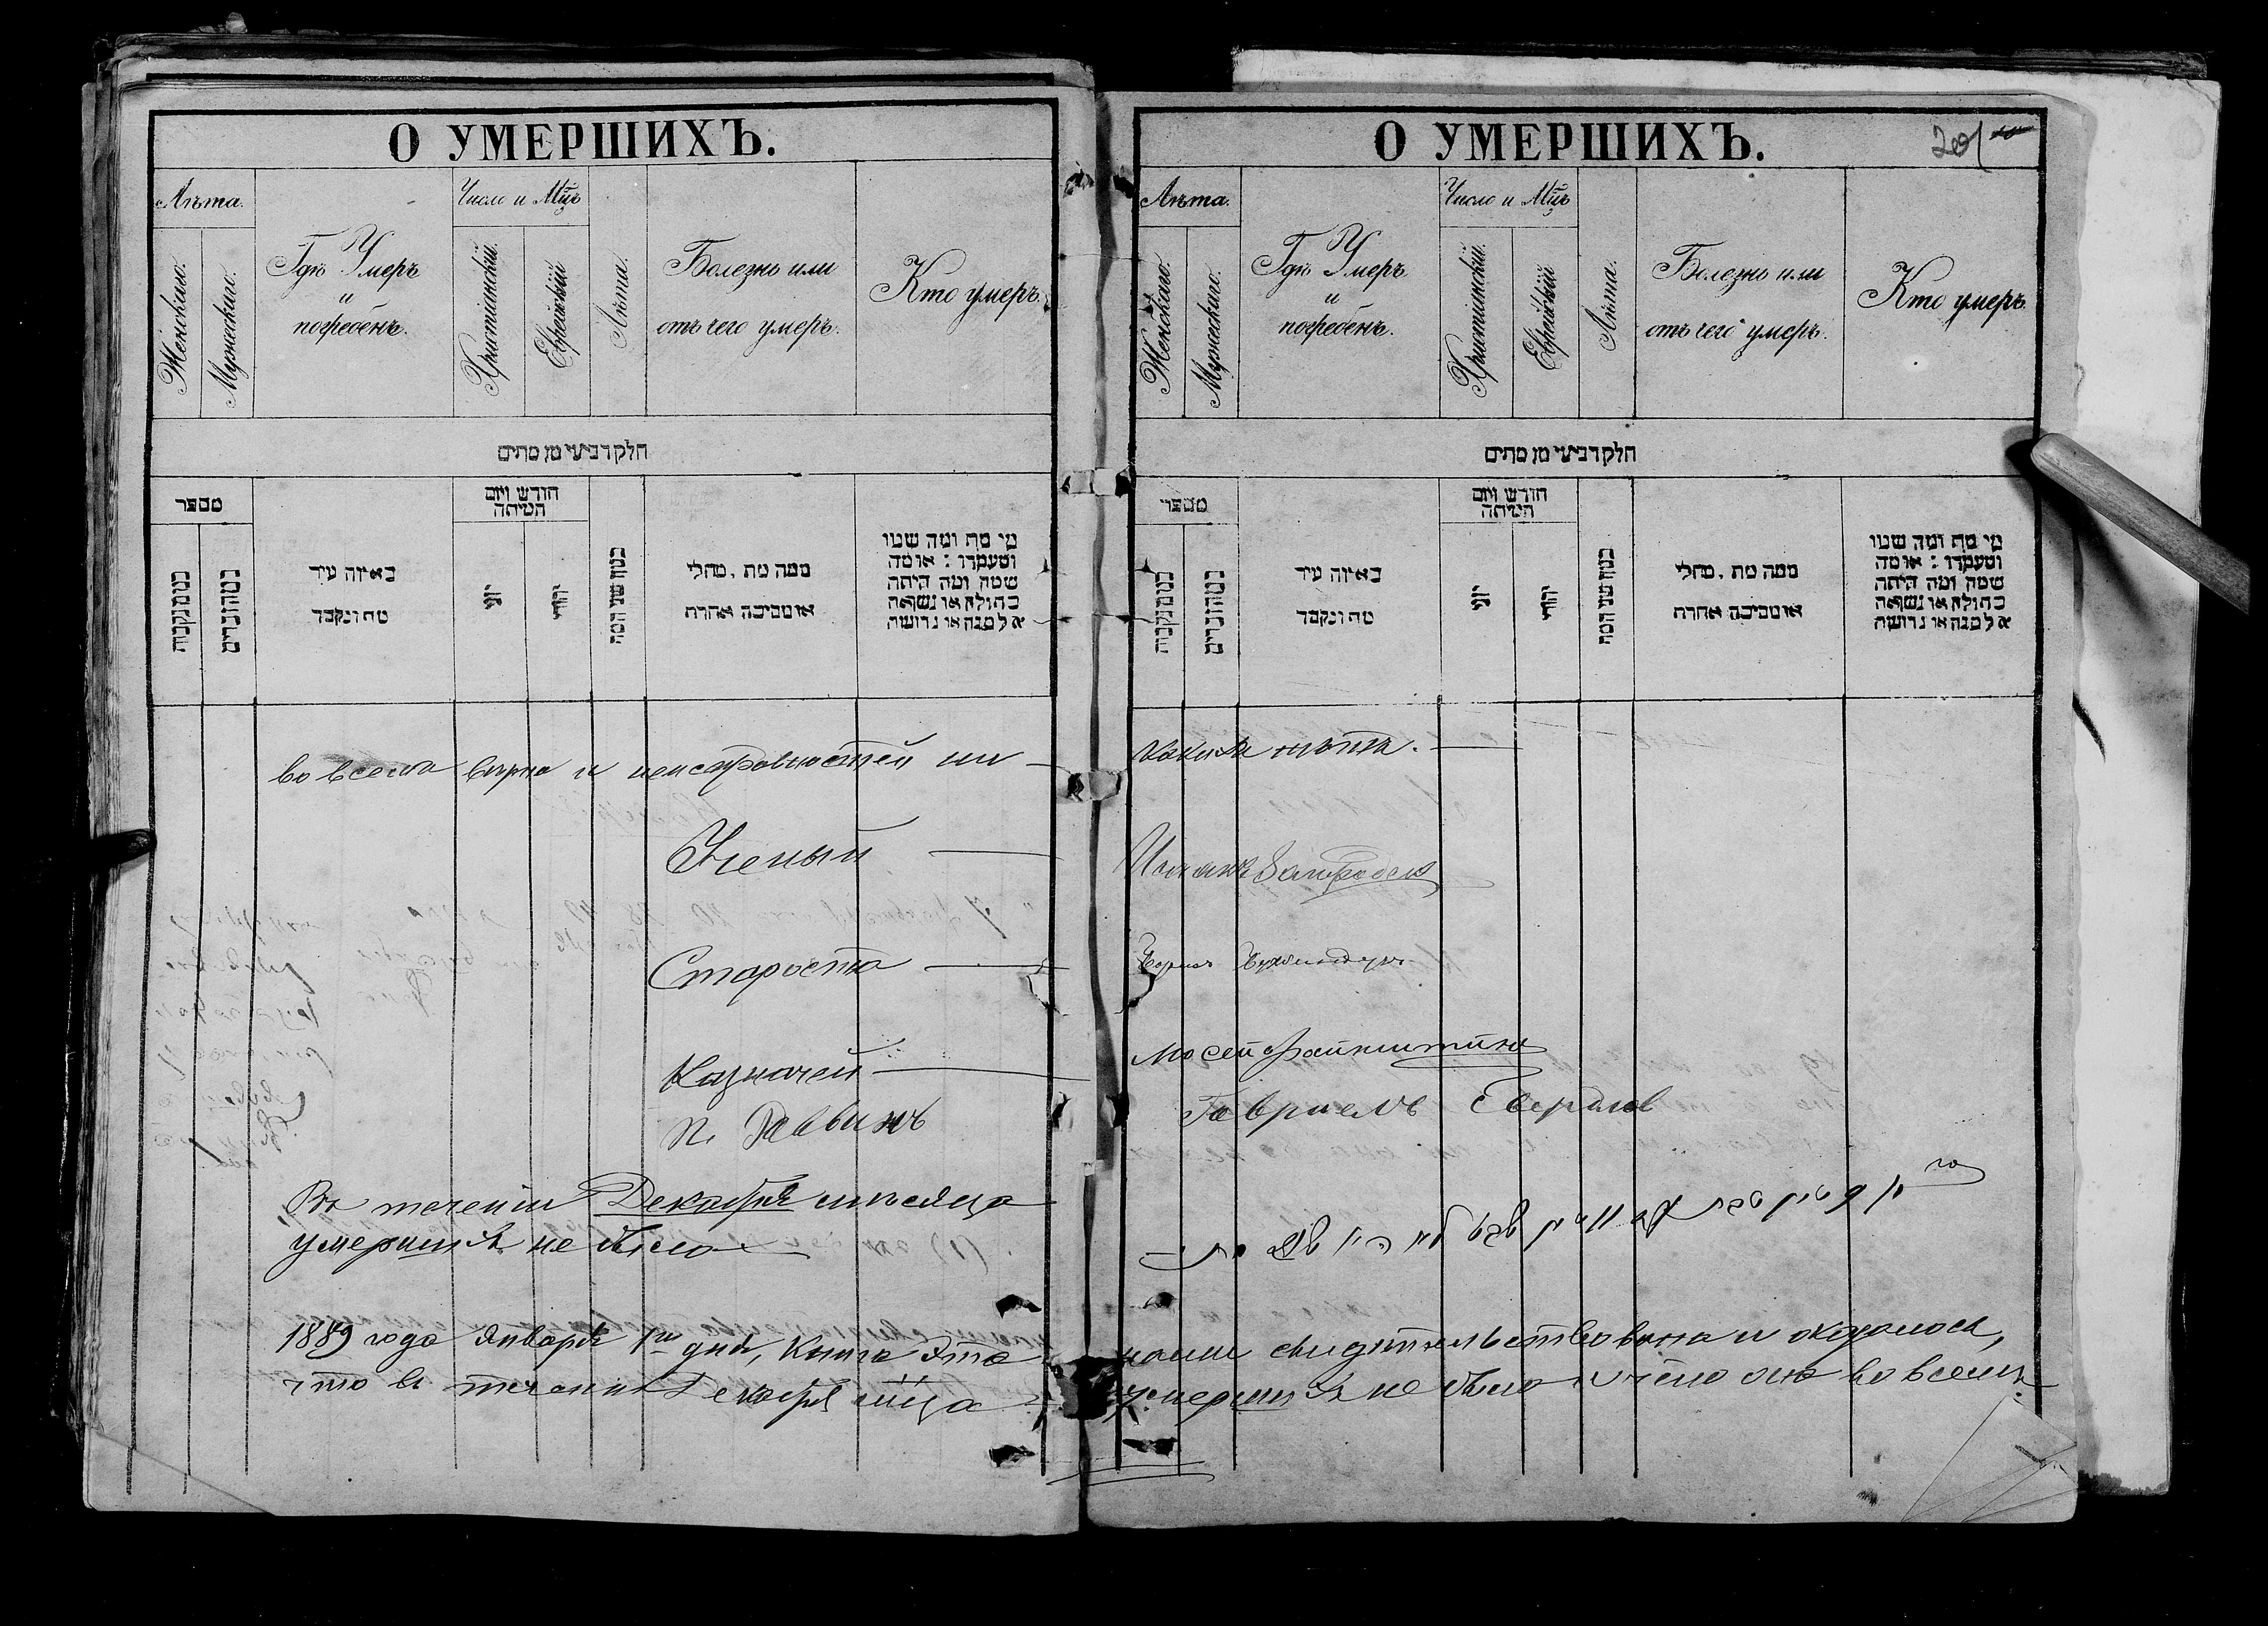 О УМЕРШИХЪ.
Лѣта.
Женскаго.
Мужескаго.
Гдѣ Умеръ
и
погребенъ.
Число и Мцъ
Христіанскій.
Еврейскій
Лѣта.
Болезнь или
отъ чего умеръ.
Кто умеръ.
חלק רביעי מן מתים
מספר
במהנקבות
במהזכרים
באיזה עיר
מת ונקבר
חודש ויום
המיתה
יוני
יהודי
ממה מת, מחלי
או מסיבה אחרת
מי מת ומה שמו
ומעמדו: או מה
שמה ומה היתה
בתולה או נשואה
אלמנה או גרושה
во всемъ вѣрна и неисправностей ни-
Ученый
Староста
Казначей
П. Раввинъ
Въ теченіи Декабря мѣсяца
умершихъ не было
1889 года Января 1го дня, Книга эта
что въ теченіи Декабря мца
О УМЕРШИХЪ.
201
Лѣта.
Женскаго.
Мужескаго.
Гдѣ Умеръ
и
погребенъ.
Число и Мцъ
Христіанскій.
Еврейскій
Лѣта.
Болезнь или
отъ чего умеръ.
Кто умеръ.
חלק רביעי מן מתים
מספר
במהנקבות
במהזכרים
באיזה עיר
מת ונקבר
חודש ויום
המיתה
יוני
יהודי
ממה מת, מחלי
או מסיבה אחרת
מי מת ומה שמו
ומעמדו: או מה
שמה ומה היתה
בתולה או נשואה
אלמנה או גרושה
какихъ нѣтъ.
Мосей Файнштейнъ
Гавриелъ Свердлов
нами свидѣтельствована и оказалось,
умершихъ не было и что она во всемъ